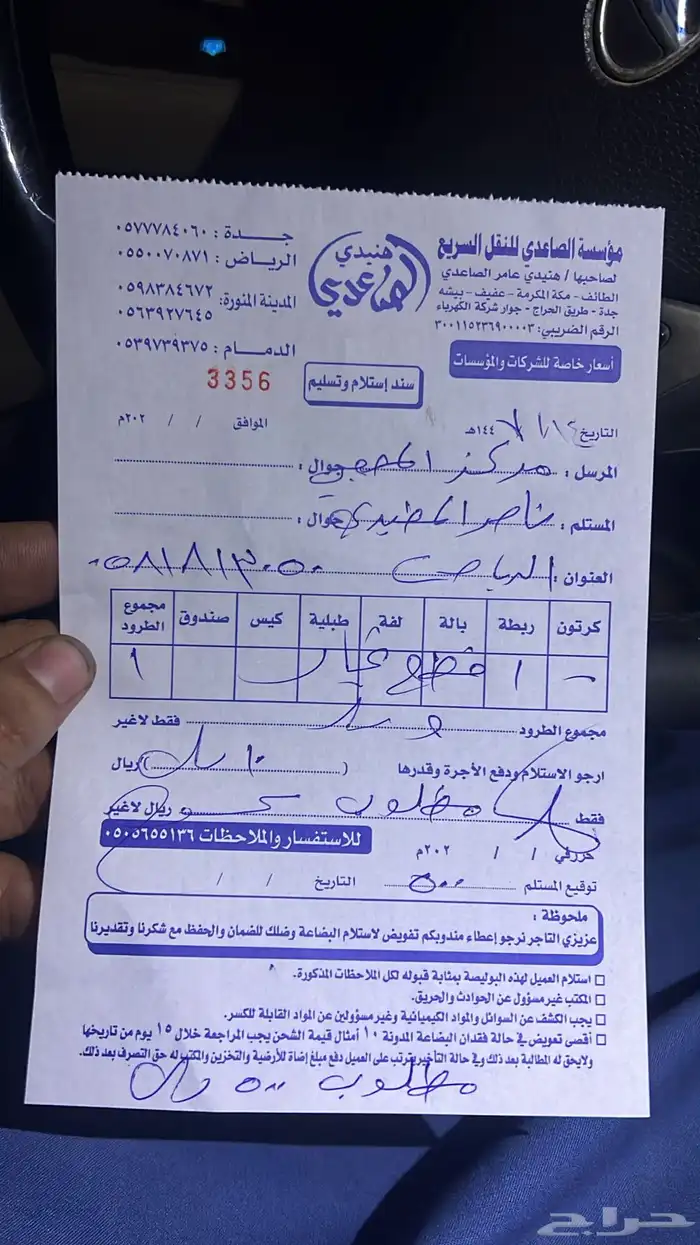 مؤسسة الصاعدي للنقل السريع
لصاحبها / هنيدي عامر الصاعدي
الطائف - مكة المكرمة - عفيف - بيشه
جدة - طريق الحراج - جوار شركة الكهرباء
الرقم الضريبي: ٣٠٠١١٥٢٣٦٩٠٠٠٠٣
أسعار خاصة للشركات والمؤسسات
هنيدي
الصاعدي
جـــدة : ٠٥٧٧٧٨٤٠٦٠
الرياض : ٠٥٥٠٠٧٠٨٧١
المدينة المنورة: ٠٥٩٨٣٨٤٦٧٢
٠٥٦٣٩٢٧٦٤٥
الدمـــام : ٠٥٣٩٧٣٩٣٧٥
3356
سند إستلام وتسليم
التاريخ / / ١٤٤هـ الموافق / / ٢٠٢م
المرسل : مركز جوال :
المستلم : ناصر المطيري جوال :
العنوان : الرياض ٠٥٨١٨١٣٠٥٠
كرتون ربطة بالة لفة طبلية كيس صندوق مجموع الطرود
- ١ قطع غيار ١
مجموع الطرود فقط لاغير
ارجو الاستلام ودفع الأجرة وقدرها ( ) ريال
فقط مطلوب ريال لاغير
حرر في / / ٢٠٢م
للاستفسار والملاحظات ٠٥٠٥٦٥٥١٣٦
توقيع المستلم ٥٠٠ التاريخ / /
ملحوظة :
عزيزي التاجر نرجو إعطاء مندوبكم تفويض لاستلام البضاعة وضلك للضمان والحفظ مع شكرنا وتقديرنا
استلام العميل لهذه البوليصة بمثابة قبوله لكل الملاحظات المذكورة.
المكتب غير مسؤول عن الحوادث والحريق.
يجب الكشف عن السوائل والمواد الكيميائية وغير مسؤولين عن المواد القابلة للكسر.
أقصى تعويض في حالة فقدان البضاعة المدونة ١٠ أمثال قيمة الشحن يجب المراجعة خلال ١٥ يوم من تاريخها
ولايحق له المطالبة بعد ذلك وفي حالة التأخير يترتب على العميل دفع مبلغ إضافة للأرضية والتخزين والمكتب له حق التصرف بعد ذلك.
مطلوب ٥٠٠ ريال
حراج